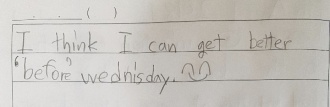 ( )
I think I can get better
"before" wednisday.